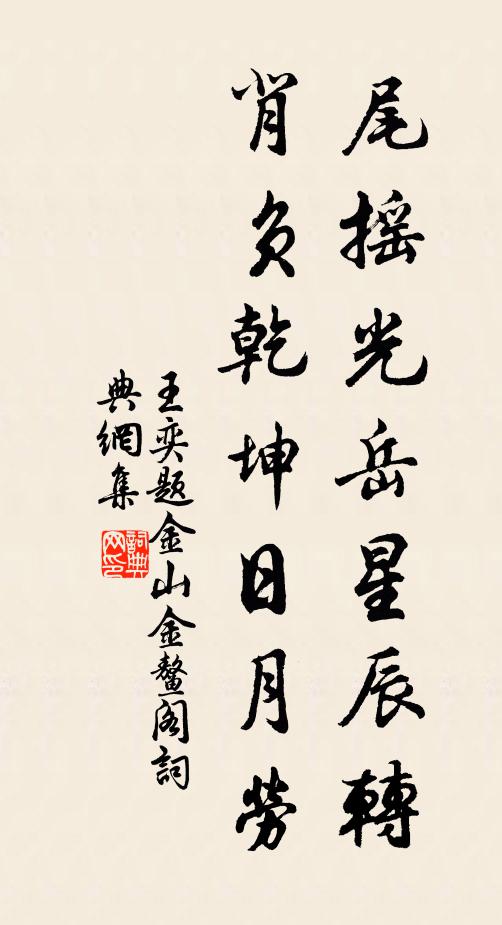 尾摇光岳星辰轉
背負乾坤日月勞
王奕题金山金鳌阁詞
典網集
詞典
网印